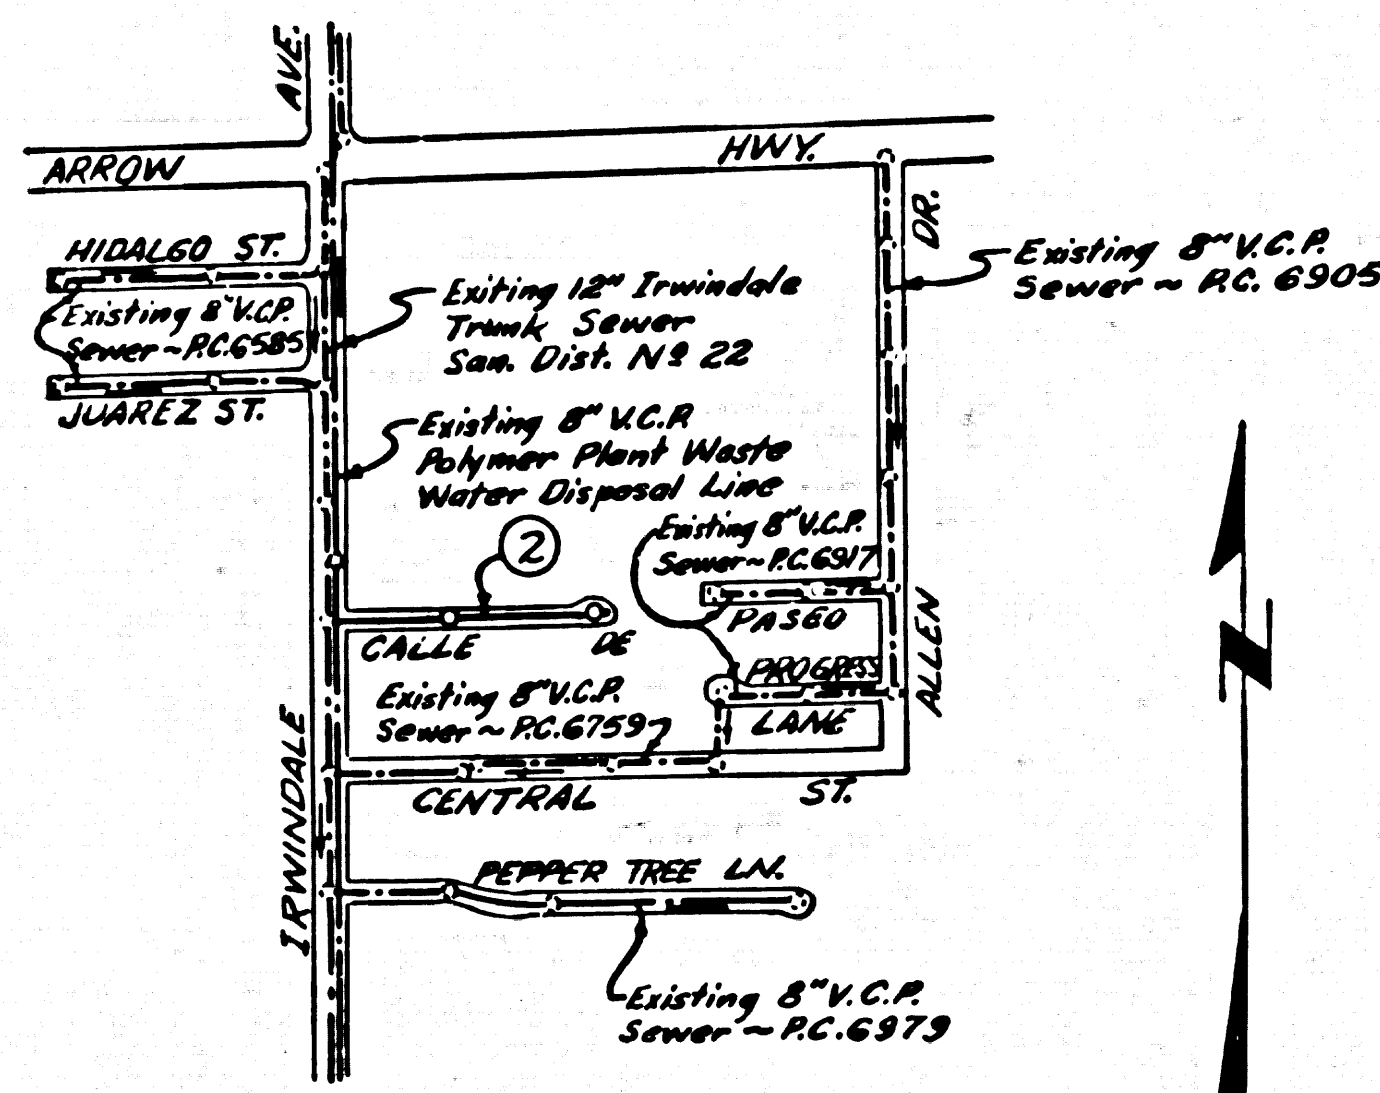 AVE.
ARROW
HWY.
HIDALGO ST.
DR.
Existing 8" V.C.P.
Sewer ~ P.C. 6905
Exiting 12" Irwindale
Trunk Sewer
San. Dist. Nº 22
Existing 8" V.C.P.
Sewer ~ P.C. 6585
JUAREZ ST.
Existing 8" V.C.P.
Polymer Plant Waste
Water Disposal Line
Existing 8" V.C.P.
Sewer ~ P.C. 6917
2
CALLE DE
PASEO
ALLEN
PROGRESS
LANE
Existing 8" V.C.P.
Sewer ~ P.C. 6759
IRWINDALE
CENTRAL ST.
PEPPER TREE LN.
Existing 8" V.C.P.
Sewer ~ P.C. 6979
N